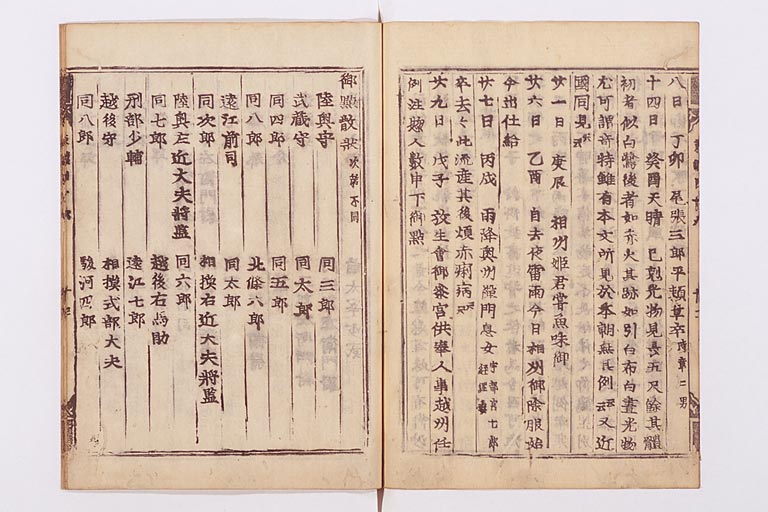 八日 丁卯 尾張三郎平頼章卒 時章二男
十四日 癸酉天晴 巳剋光物見長五尺餘其體
初者似白鷺後者如赤火其跡如引白布白晝光物
尤可謂奇特雖有本文所見於本朝無其例云々又近
國同見云々
廿一日 庚辰 相州姬君嘗魚味御
廿六日 乙酉 自去夜雷雨今日相州御除服始
令出仕給
廿七日 丙戌 雨降奧州禪門息女宇都宮七郎經綱妻
卒去云々此流産其後煩赤痢病云々
廿九日 戊子 放生會御參宮供奉人事越州任
例注賦人數申下御點
御點散狀 次第不同
陸奧守 同三郎
武藏守 同太郎
同四郎 同五郎
同八郎 北條六郎
遠江前司 同太郎
同次郎 相摸右近大夫將監
陸奧左近大夫將監 同六郎
同七郎 越後右馬助
刑部少輔 遠江七郎
越後守 相摸式部大夫
同八郎 駿河四郎